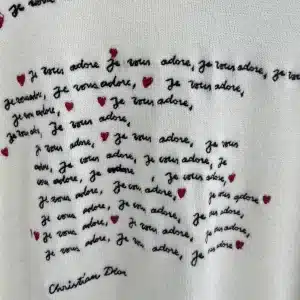 je vous adore,
je vous adore, je vous adore, je vous adore, je vous
je vous adore, je vous adore, je vous adore,
je vous adore, je vous adore,
je vous adore, je vous adore,
je vous adore, je vous
je vous adore, je vous adore, je
vous adore, je adore
je vous adore, je vous adore, je vous adore,
je vous adore, je vous adore, je vous adore
je vous adore, je vous adore,
je vous adore, je vous adore,
je vous adore, je vous adore, je vous adore
Christian Dior